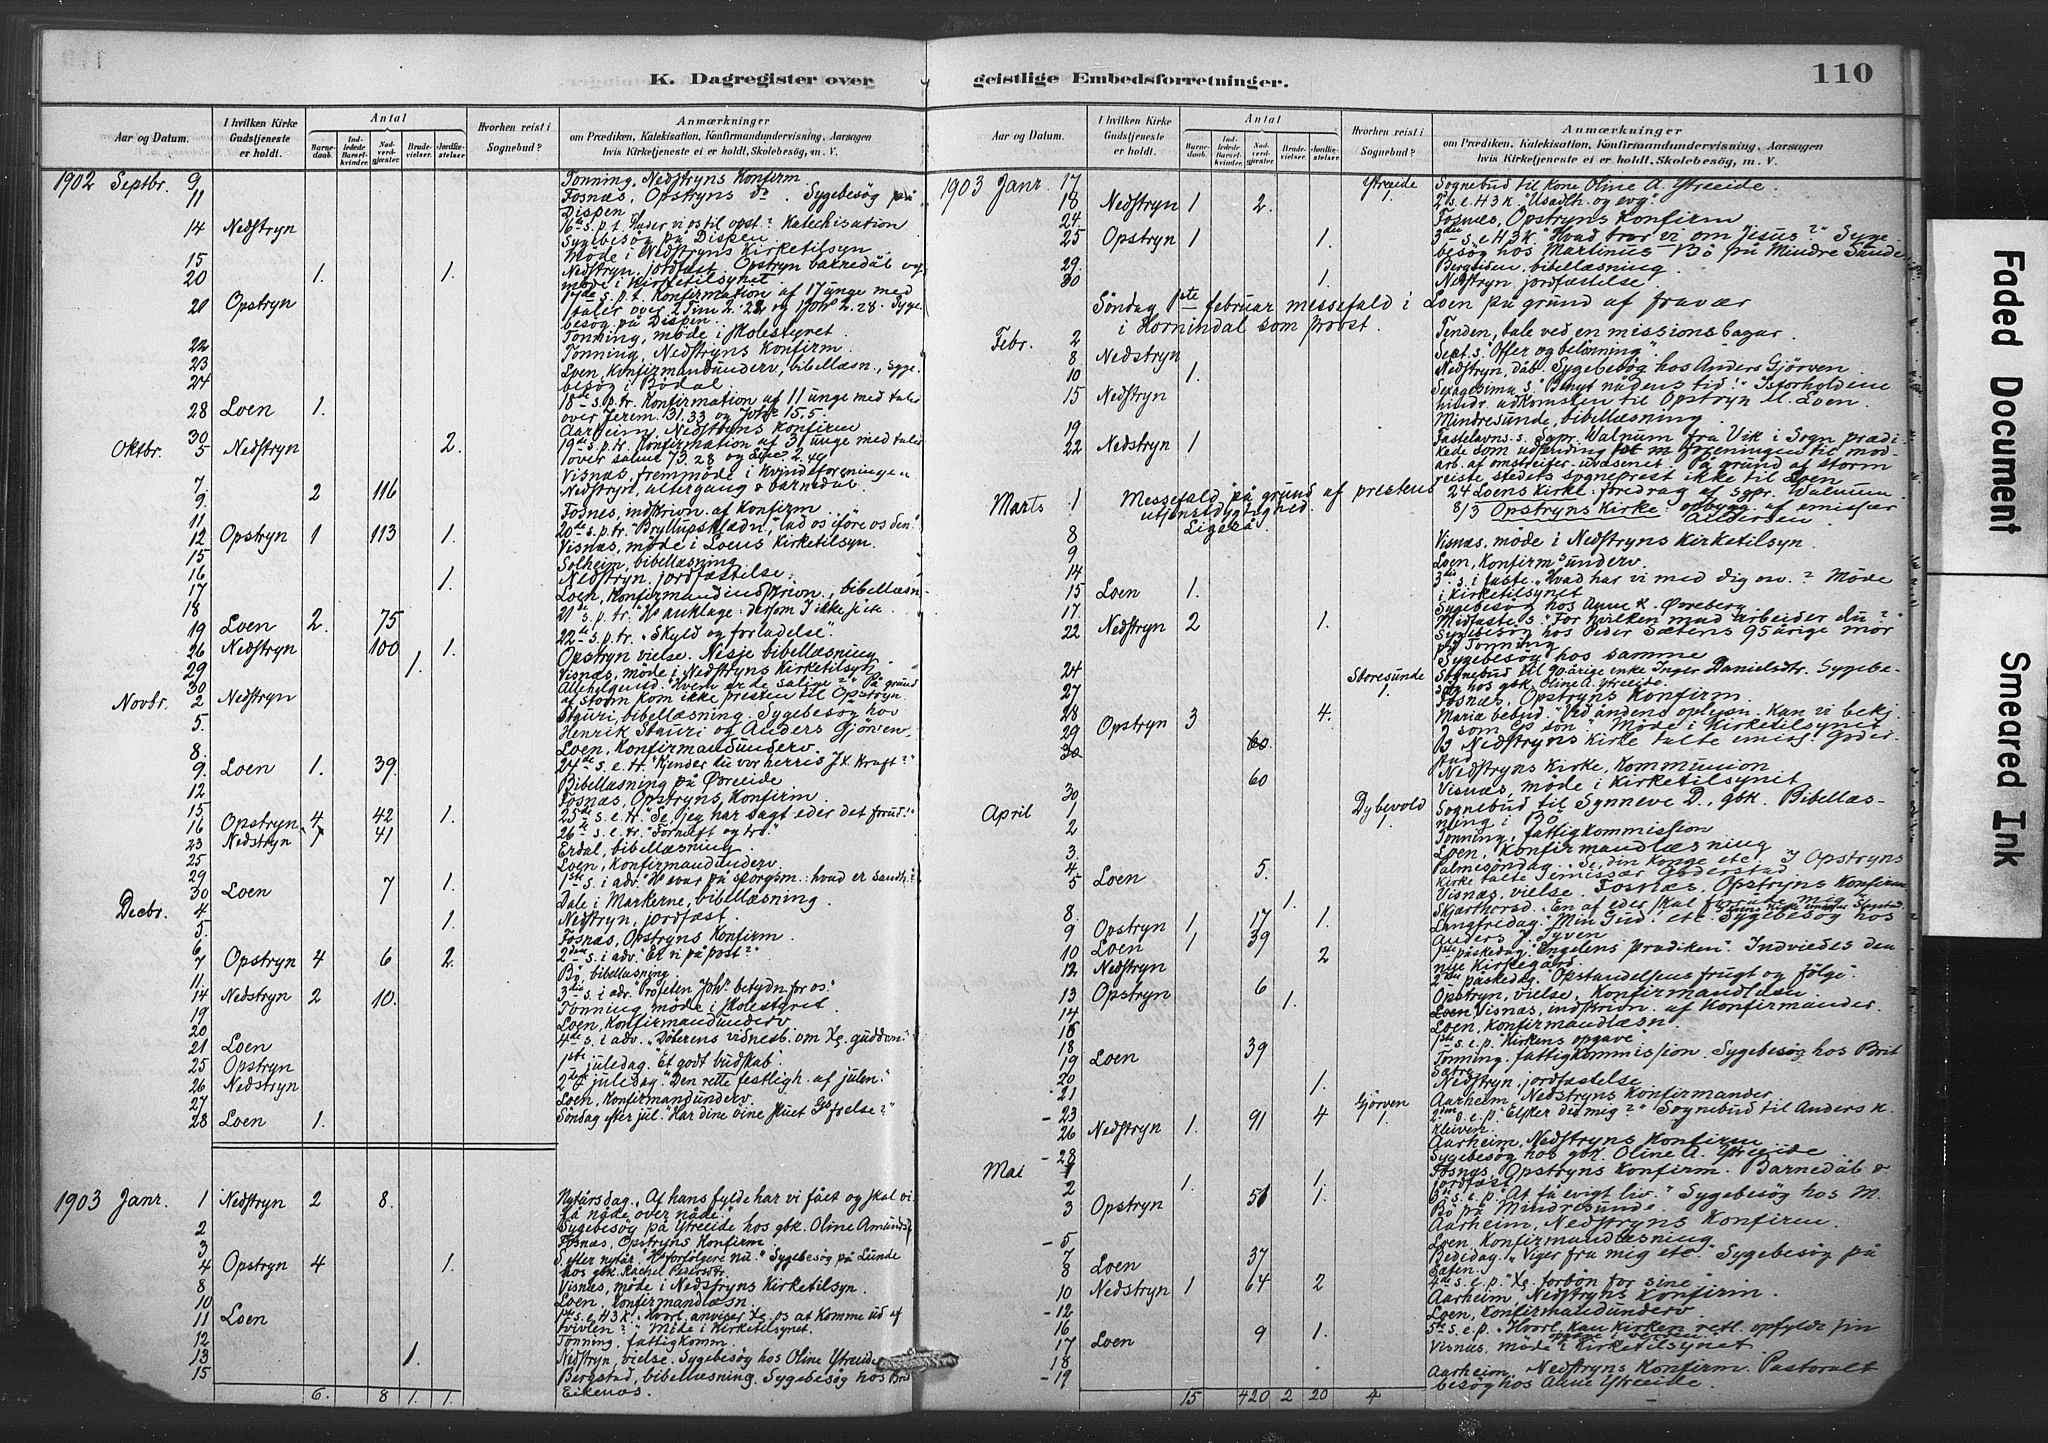 K. Dagregister over
geistlige Embedsforretninger.
110
Aar og Datum.
I hvilken Kirke Gudstjeneste er holdt.
Antal
Barnedaab.
Indledede Barselkvinder.
Nadvergjæster.
Brudevielser.
Jordfæstelser
Hvorhen reist i Sognebud?
Anmærkninger
om Prædiken, Katekisation, Konfirmandundervisning, Aarsagen
hvis Kirketjeneste ei er holdt, Skolebesøg, m. V.
1902 Septbr. 9 Tonning, Nedstryns Konfirm
11 Fosnæs, Opstryns do. Sygebesög på
Dispen
14 Nedstryn Katechisation
Sygebesög på Dispen
15 Möde i Nedstryns Kirketilsyn
20 1. 1. Nedstryn. jordfæst. Opstryn barnedåb og
möde i Kirketilsynet
20 Opstryn 17de s.p.t. Konfirmation af 17 unge med
besög på Dispen.
22 Tonning, möde i skolestyret.
23 Tonning, Nedstryns Konfirm.
24 Loen, Konfirmandunderv, bibellæsn., syge-
besög i Bödal.
28 Loen 1. 18de s.p.tr. Konfirmation af 11 unge med taler
over Jerem. 31.33 og Joh. 15.5
30 Aarheim, Nedstryns Konfirm
Oktbr. 5 Nedstryn 2. 19de s.p.tr. Konfirmation af 31 unge med taler
7. Visnæs, fremmöde i Kvindeforeningen
9. 2 116 Nedstryn, altergang & barnedåb.
11 Fosnæs, indskrivn. af Konfirm
12 Opstryn 1 113 1. 20de s.p.tr.
15 Visnæs, möde i Loens Kirketilsyn.
16 Solheim, bibellæsning
17 1. Nedstryn. jordfæstelse.
18 Loen, Konfirmandindskrivn., bibellæsn-
19 Loen 2. 75 21de s.p.tr.
26 Nedstryn 100 1. 22de s.p.tr. "Skyld og forladelse".
29 1. Opstryn vielse. Nesje bibellæsning
30 Visnæs, möde i Nedstryns Kirketilsyn
Novbr. 2 Nedstryn Allehelgensd. "Hvem er de salige?" På grund
af storm kom ikke presten til Opstryn.
5. Stauri, bibellæsning. Sygebesög hos
Henrik Stauri og Anders Gjörven
8. Loen, Konfirmandunderv.
9. Loen 1. 39. 24de s.e.tr. "Kjender du vor herris Jx kraft?"
12 Bibellæsning på Öreeide
15 Fosnæs, Opstryns Konfirm.
16 Opstryn 4 42 1. 25de s.e.tr. "Se, jeg har sagt eder det forud!"
23 Nedstryn 7 41 26de s.e.tr. "Fornuft og tro"
25 Erdal, bibellæsning.
29 Loen, Konfirmandunderv.
30 Loen 7 1. 1ste s. i adv.
Decbr. 4 Dale i Markerne, bibellæsning.
5. 1. Nedstryn, jordfæst.
6. Fosnæs, Opstryns Konfirm.
7 Opstryn 4 6 2. 2den s. i adv. "Er vi på post?"
11. Bö, bibellæsning.
14 Nedstryn 2 10. 3die s. i adv.
19 Tonning, möde i skolestyret
20 Loen, Konfirmandunderv
21 Loen 4de s. i adv.
25 Opstryn 1ste juledag. "Et godt budskab".
26 Nedstryn 2den juledag. "Den rette festligh. af julen."
27 Loen, Konfirmandunderv.
28 Loen 1. Söndag efter jul.
1903 Janr. 1 Nedstryn 2 8. Nytårsdag. "Af hans fylde har vi fået og skal vi
få nåde over nåde."
2 Sygebesög på Ytreeide hos gbk. Oline
3 Fosnæs, Opstryns Konfirm.
4 Opstryn 4 1. S. efter nytår. Sygebesög på Lunde
hos gbk. Rachel Pedersdtr.
8 Visnæs, möde i Nedstryns Kirketilsyn.
10 Loen, Konfirmandlæsn.
11 Loen 1ste s.e.H3K. at komme ud af
tvivlen?" Möde i Kirketilsynet.
12 Tonning, fattigkomm.
13 1. Nedstryn, vielse. Sygebesög hos Oline Ytreeide
15 Bergstad, bibellæsning. Sygebesög hos
Eikenæs.
6. 8 1. 1.
1903 Janr. 17 Ytreeide 1 Sognebud til kone Oline A. Ytreeide.
18 Nedstryn 1 2. 2den s.e.H3K.
24 Fosnæs, Opstryns Konfirm
25 Opstryn 1 1. 3die s.e.H3K. "Hvad tror vi om Jesus?" Syge-
besög hos Martinus Bö på Mindre Sunde
29. bibellæsning.
30 1. Nedstryn jordfæstelse
Söndag 1ste februar messefald i Loen på grund af fravær
i Hornindal som provst.
Febr. 2 Tenden, tale ved en missionsbazar.
8 Nedstryn Sept. s. "Offer og belönning".
10 1. Nedstryn, dåb. Sygebesög hos Anders Gjörven
15 Nedstryn Sexagesima s. "Benyt nådens tid!" Isforholdene
hindr. adkomsten til Opstryn
19 Mindresunde, bibellæsning
22 Nedstryn 1 Fastelavns-s. Sgpr. Walnum fra Vik i Sogn prædi-
kede som udsending foreningen til mod-
arb. af omstreifer-uvæsenet. På grund af storm
reiste stedets sogneprest ikke til Loen
24 Loens Kirke: foredrag af sgpr. Walnum.
Marts 1 Messefald på grund af prestens
utjenstdygtighed.
8 Ligeså
8/3 Opstryns Kirke: opbygg. af emissær
Andersen
9 Visnæs, möde i Nedstryns Kirketilsyn.
14 Loen, Konfirm.underv.
15 Loen 1. 3die s. i faste. "Hvad har vi med dig ? Möde
i Kirketilsynet
17. Sygebesög hos Anne K. Öreberg
22 Nedstryn 2 1. Midfaste s. "For hvilken mad arbeider du?"
Sygebesög hos Peder Sætens 95 årige mor
på Tonning
24 Sygebesög hos samme
27 Storesunde 1 Sognebud til 90 årige enke Inger Danielsdtr. Sygebe-
sög hos gbk. Oline A. Ytreeide.
28 Fosnæs, Opstryns Konfirm
29 Opstryn 3 4. Mariæ bebud. "Ved åndens oplysn. kan vi bekj.
J. som Gs sön." Möde i Kirketilsynet
30 60 I Nedstryns Kirke talte emiss. Goder-
stad
60 Nedstryns Kirke, Kommunion
30 Visnæs, möde i Kirketilsynet
April 1 Dybevold 1 Sognebud til Synneve D., gbk. Bibellæs-
ning i Bö
2 Tonning, fattigkommission
3. Loen, Konfirmandlæsning
4 5 Loen 5. Palmesöndag. "Se, din Konge etc." I Opstryns
Kirke talte emissær Goderstad
8. 1. Visnæs, vielse. Fosnæs, Opstryns Konfirm
9 Opstryn 1 17 1. Skjærthorsd. "En af eder skal forråde mig"
10 Loen 1 39 2 Langfredag. "Min Gud! etc." Sygebesög hos
Anders J. Tyven
12 Nedstryn 1ste påskedag. "Engelens prædiken". Indviedes den
nye Kirkegård.
13 Opstryn 6 2den påskedag. "Opstandelsens frugt og fölge".
14 1. Opstryn, vielse, Konfirmandlæsn.
16 Visnæs, indskrivn. af Konfirmander
18 Loen, Konfirmandlæsn.
19 Loen 39 1ste s.e.p. "Kirkens opgave"
20 Tonning. fattigkommission. Sygebesög hos Brit
Sætre
21 1. Nedstryn. jordfæstelse
23 Aarheim, Nedstryns Konfirmander
26 Nedstryn 1. 91 4 Gjörven 1. 2den s.e.p. "Elsker du mig?" Sognebud til Anders K.
Kleiven.
28 Aarheim, Nedstryns Konfirm
Mai 1 Sygebesög hos gbk. Oline A. Ytreeide.
2 1. 1. Fosnæs, Opstryns Konfirm. Barnedåb &
jordfæst.
3 Opstryn 51 1. 3die s.e.p. "At få evigt liv." Sygebesög hos M.
Bö på Mindresunde.
5 Aarheim, Nedstryns Konfirm.
7 Loen, Konfirmandlæsning
8 Loen 37 Bededag. "Viger fra mig etc." Sygebesög på
Sæten.
10 Nedstryn 1 64 2 4de s.e.p. "Xs forbön for sine"
12 Aarheim, Nedstryns Konfirm.
16 Loen, Konfirmandunderv.
17 Loen 9 1. 5te s.e.p. "Hvorl. kan Kirken ret opfylde sin
opgave i verden?"
18 Visnæs, möde i Kirketilsynet
19 Aarheim, Nedstryns Konfirm. Pastoralt
besög hos Anne Ytreeide.
15 420 2 20 4
Faded Document
Smeared Ink